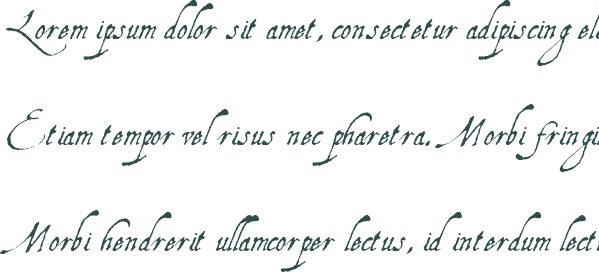 Lorem ipsum dolor sit amet, consectetur adipiscing ele
Etiam tempor vel risus nec pharetra. Morbi fringi
Morbi hendrerit ullamcorper lectus, id interdum lect